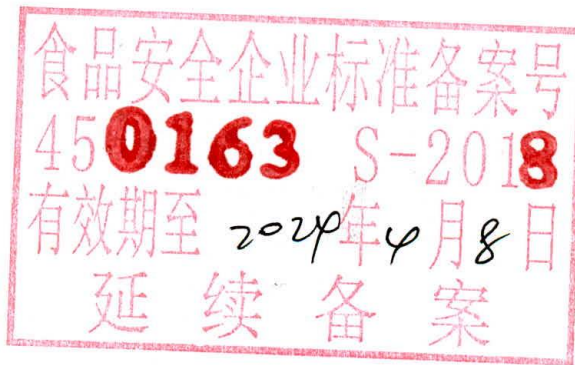 食品安全企业标准备案号
450163 S-2018
有效期至 2024年4月8日
延续备案